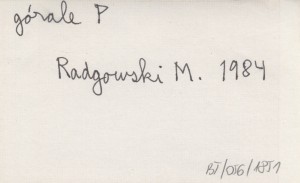 górale P
Radgowski M. 1984
BJ/016/1851